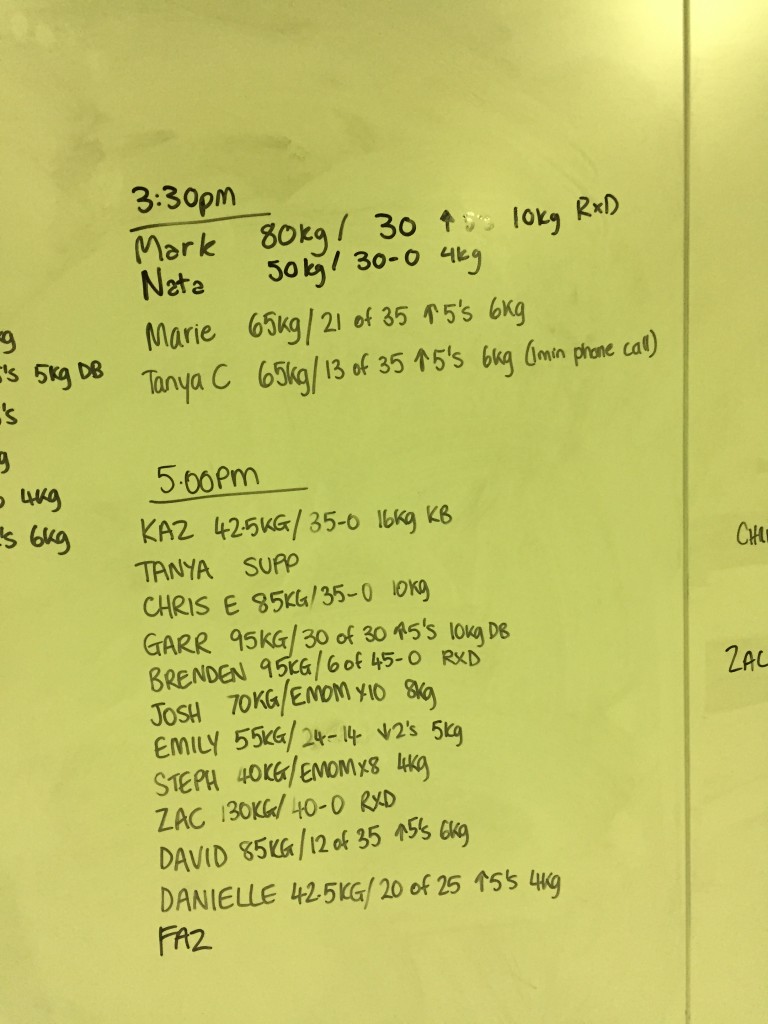 3:30pm
Mark 80kg/ 30 ↑ 10kg RxD
Nata 50kg/ 30-0 4kg
Marie 65kg/21 of 35 ↑5's 6kg
Tanya C 65kg/13 of 35 ↑5's 6kg (1min phone call)
's 5kg DB
's
4kg
's 6kg
5.00pm
KAZ 42.5KG/35-0 16kg KB
TANYA SUPP
CHRIS E 85KG/35-0 10kg
GARR 95KG/30 of 30 ↑5's 10kg DB
BRENDEN 95KG/6 of 45-0 RXD
JOSH 70KG/EMOM x10 8kg
EMILY 55KG/24-14 ↓2's 5kg
STEPH 40KG/EMOM x8 4kg
ZAC 130KG/40-0 RXD
DAVID 85KG/12 of 35 ↑5's 6kg
DANIELLE 42.5KG/20 of 25 ↑5's 4kg
FAZ
ZAC